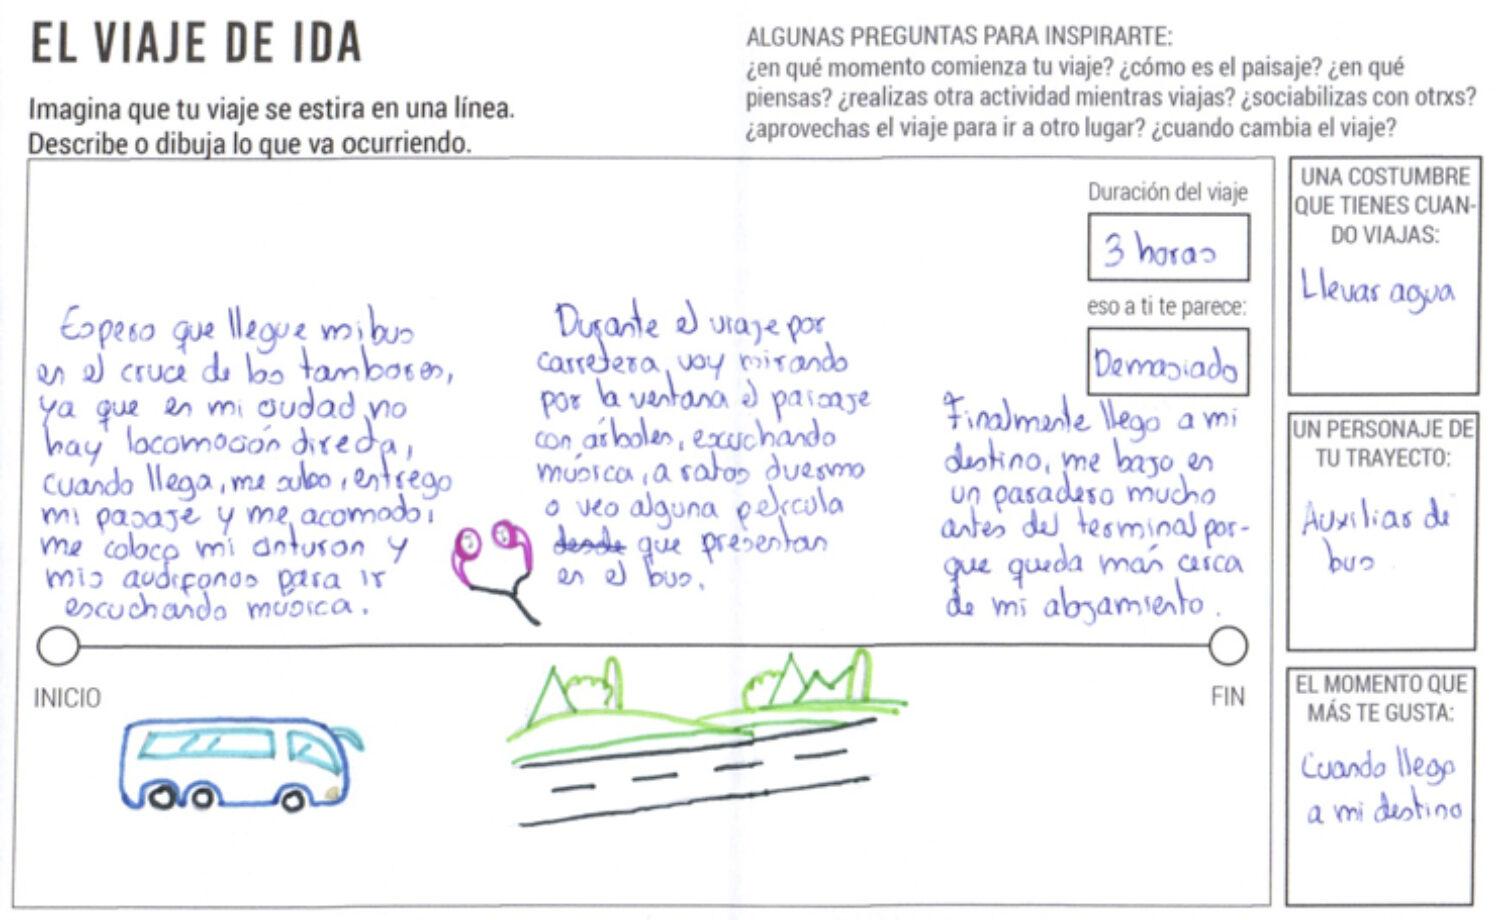 EL VIAJE DE IDA
Imagina que tu viaje se estira en una línea.
Describe o dibuja lo que va ocurriendo.
ALGUNAS PREGUNTAS PARA INSPIRARTE:
¿en qué momento comienza tu viaje? ¿cómo es el paisaje? ¿en qué
piensas? ¿realizas otra actividad mientras viajas? ¿sociabilizas con otrxs?
¿aprovechas el viaje para ir a otro lugar? ¿cuando cambia el viaje?
Duración del viaje
3 horas
eso a ti te parece:
Demasiado
Espero que llegue mi bus
en el cruce de los tambores,
ya que en mi ciudad no
hay locomoción directa,
cuando llega, me subo, entrego
mi pasaje y me acomodo,
me coloco mi cinturon y
mis audifonos para ir
escuchando música.
Durante el viaje por
carretera, voy mirando
por la ventana el paisaje
con árboles, escuchando
música, a ratos duermo
o veo alguna película
desde que presentan
en el bus.
Finalmente llego a mi
destino, me bajo en
un paradero mucho
antes del terminal por-
que queda más cerca
de mi alojamiento.
INICIO
FIN
UNA COSTUMBRE
QUE TIENES CUAN-
DO VIAJAS:
Llevar agua
UN PERSONAJE DE
TU TRAYECTO:
Auxiliar de
bus
EL MOMENTO QUE
MÁS TE GUSTA:
Cuando llego
a mi destino